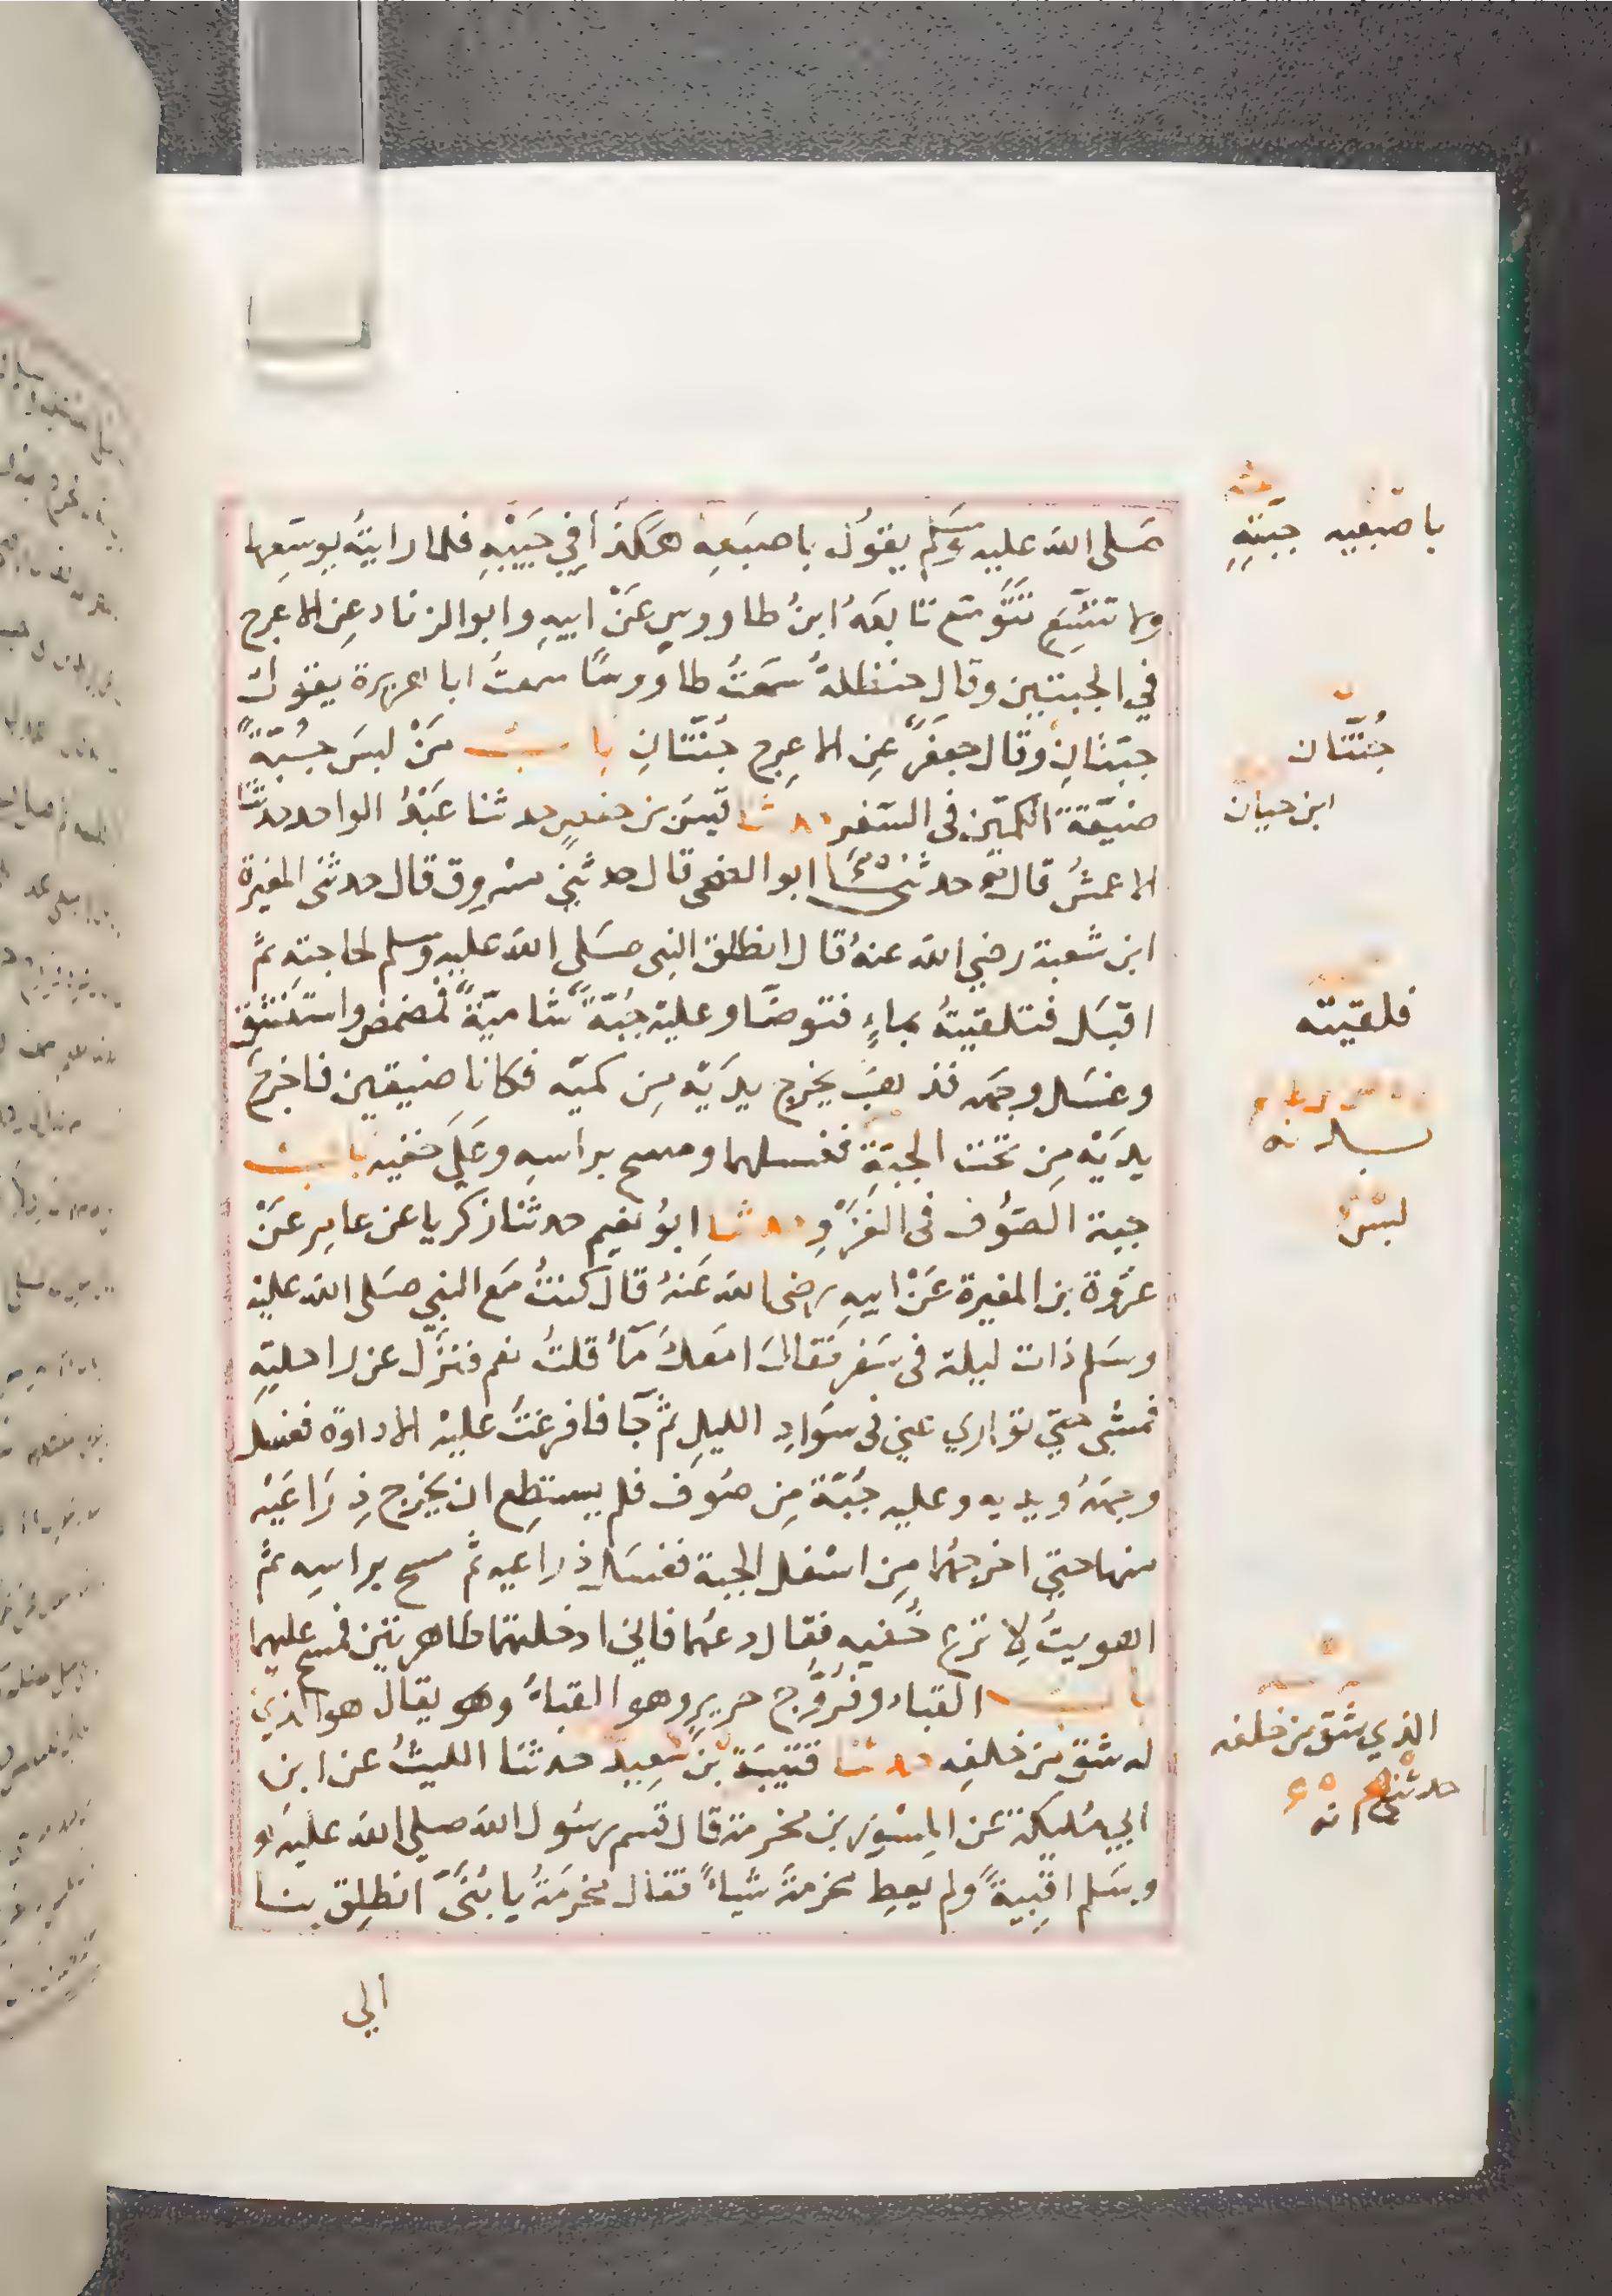 صَلى الله عليه وسَلم يقوُل باصبَعهِ هَكذَا فِي جَيْبهِ فلما رايتهُ يوسّعها
ولا تتسّع تتَوَسّع تابعَهُ ابنُ طاووسٍ عَنْ ابيهِ وابوالزناد عِن الاعرج
في الجبتين وقال حنظلةُ سَمعتُ طاووسًا سمعتُ ابا هريرة يقوُل
جبتانِ وقال جعفَرٌ عِن الاعرِج جُنّتانِ باب مَنْ لبسَ جُبّةً
ضيّقَةَ الكمّين فى السّفر حدثنا قيسُ بن حفصٍ حدثنا عَبْدُ الواحد حدثنا
الاعمشُ قال حدثنى ابوالضحى قال حدثِني مسْروق قال حدثنى المغيرة
ابن شعبة رضي الله عنهُ قال انطلق النبى صَلى الله عليه وسلم لحاجتهِ ثمَّ
اقبَل فتلقيتهُ بماءٍ فتوضّا وعليْه جُبّةٌ شاميّةٌ فمضمض واستنشق
وغسَل وجهَه فذهبَ يخرج يدَيْه مِن كميّه فكانا ضيقين فاخرجَ
يدَيْه مِن تحت الجبّةِ فغسلهما ومسح براسهِ وعَلَى خفيه باب
جبة الصّوُف فى الغَزْوِ حدثنا ابوُ نعيم حدثنا زكريا عن عامِر عَنْ
عرْوَة بن المغيرة عَنْ ابيهِ رضى الله عَنهُ قال كنتُ مَع النبي صَلى الله عليْه
وسَلم ذات ليلة فى سَفر فقالَ امَعكَ مَآءٌ قلتُ نعم فنزَل عن راحلتِه
فمشَى حتي توَاري عني فى سوَادِ الليلِ ثمَّ جَآ فافرغتُ عليْه الاداوة فغسل
وجهَهُ ويديه وعليه جُبّة مِن صوُف فلم يستطِع ان يخرج ذِرَاعَيْه
منها حتي اخرجهُما مِن اسْفل الجبة فغسَل ذراعيه ثمَّ مسح براسهِ ثمَّ
اهويتُ لاِنزع خُفيه فقال دعهُما فاني ادخلتهُما طاهرتين فمسح عليهما
باب القباء وفرُّوج حريرٍ وهوالقباءُ وهو يقال هوالذي
له شق من خلفِه حدثنا قتيبَة بن سَعِيد حدثنا الليثُ عن ابن
ابي مُليكة عن المِسْورِ بن مخرمة قال قسم رسوُل الله صلى الله عليْه و
وسَلم اقبيةً ولم يعطِ مخرمةَ شيأً فقال مخرمَةُ يا بُنَىَّ انطلِق بنا
الي
باصبعيه جبتهِ
جُنّتان
ابن حيان
فلقيته
لبسَ
الذي شق من خلفه